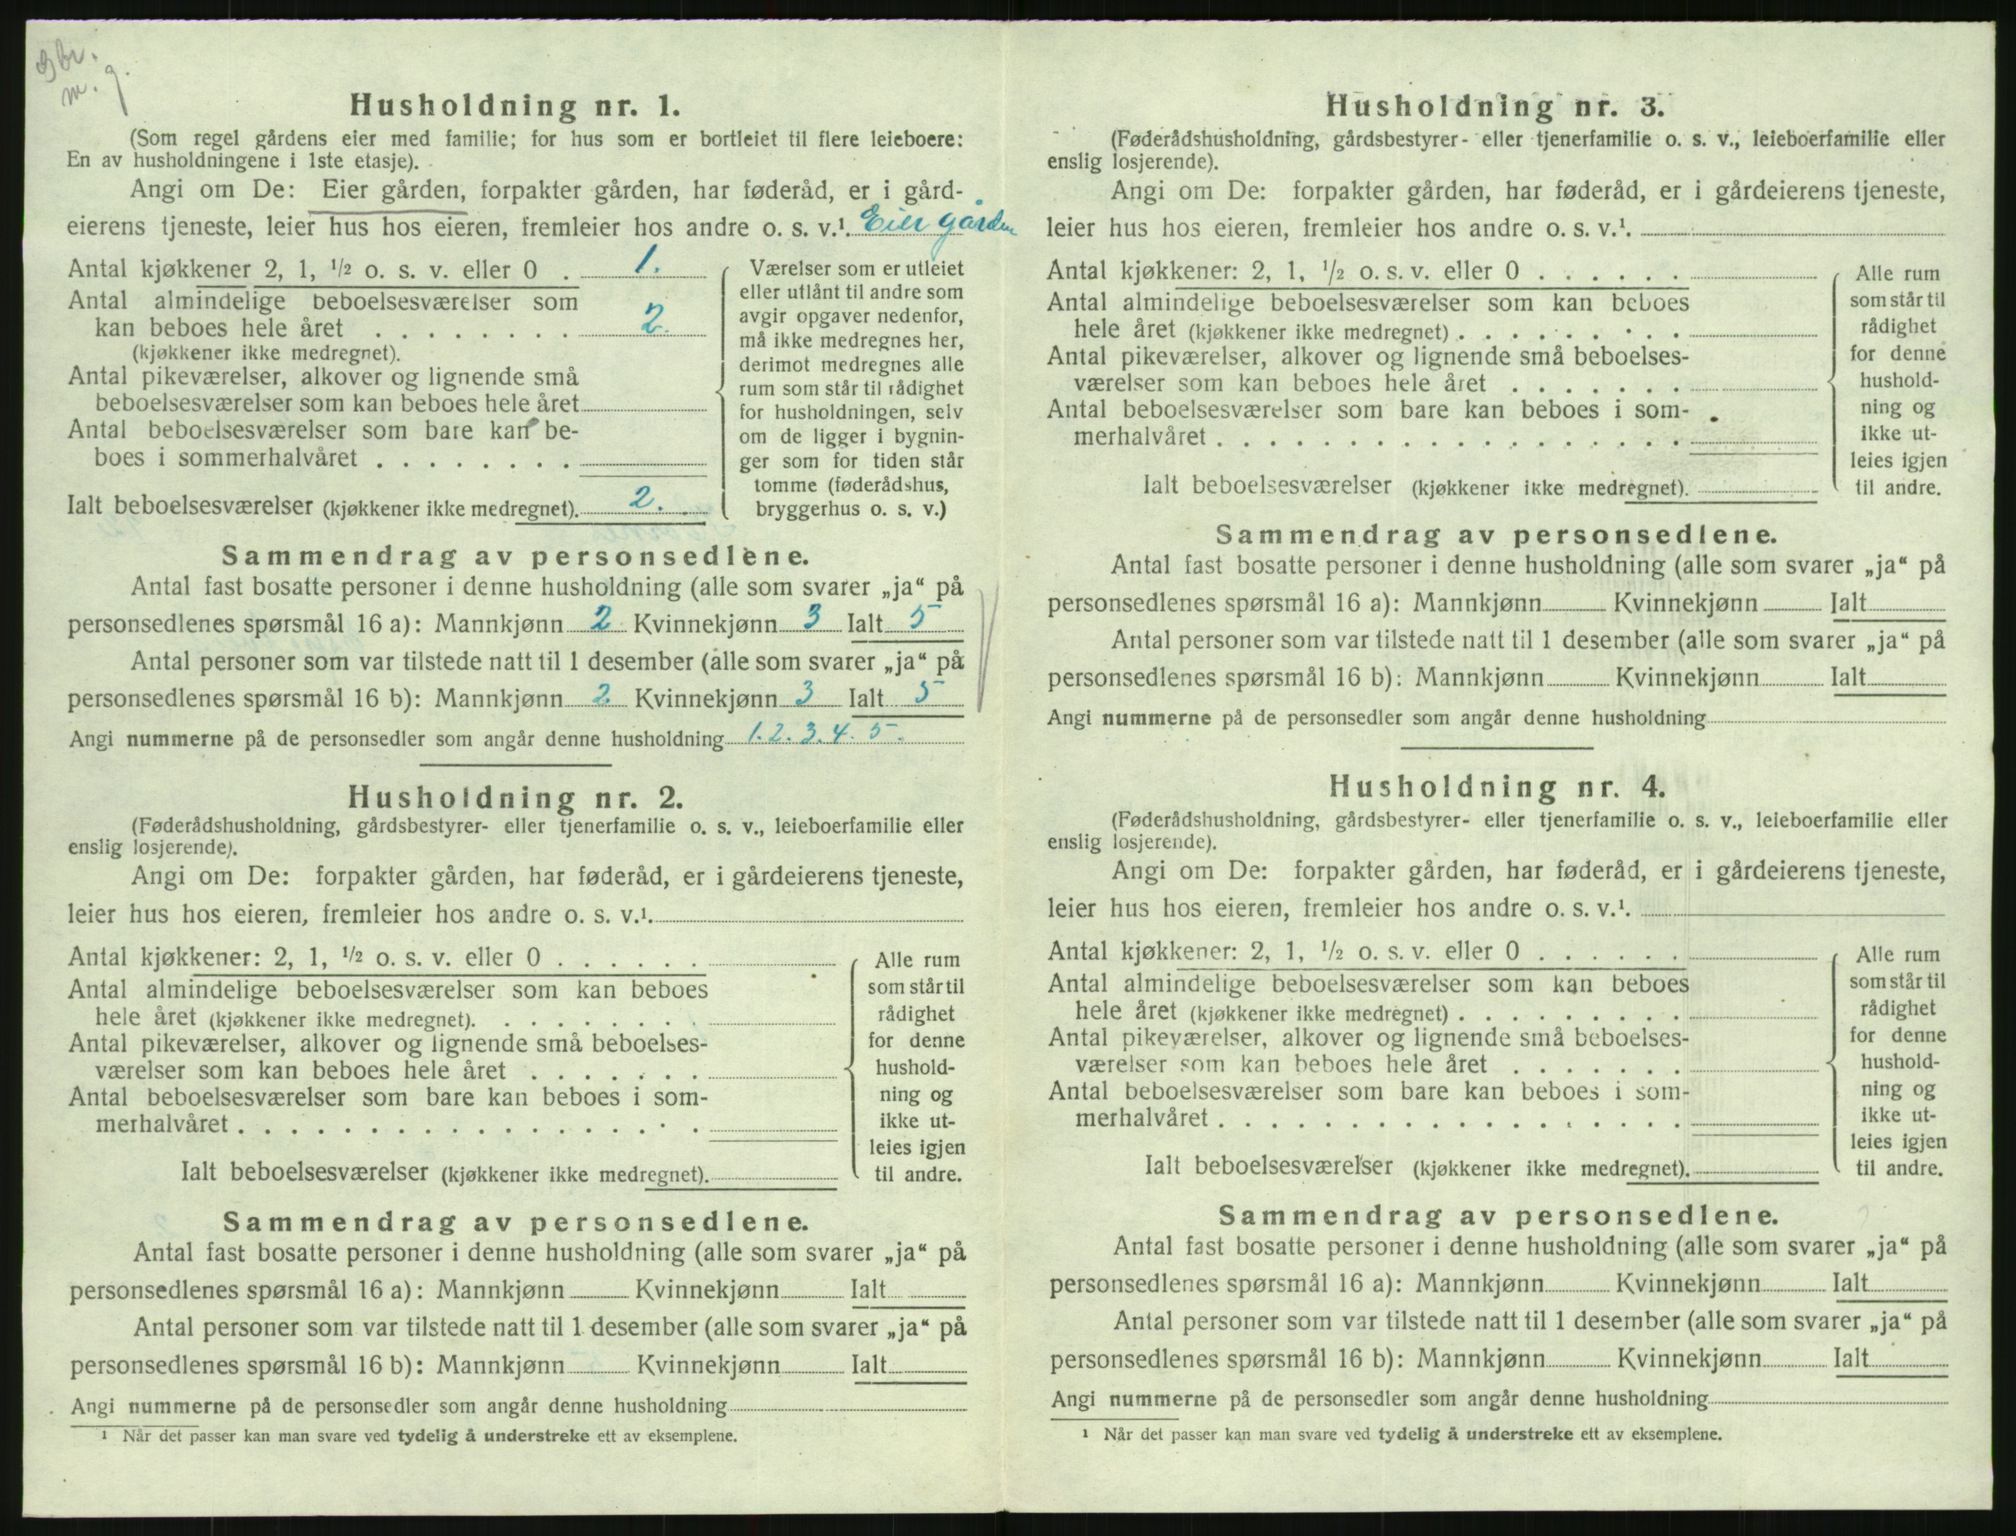 m. g.
Husholdning nr. 1.
(Som regel gårdens eier med familie; for hus som er bortleiet til flere leieboere:
En av husholdningene i 1ste etasje).
Angi om De: Eier gården, forpakter gården, har føderåd, er i gård-
eierens tjeneste, leier hus hos eieren, fremleier hos andre o. s. v.¹. Eier gården
Antal kjøkkener 2, 1, ½ o. s. v. eller 0 . 1.
Antal almindelige beboelsesværelser som
kan beboes hele året . . . . . . . . 2.
(kjøkkener ikke medregnet).
Antal pikeværelser, alkover og lignende små
beboelsesværelser som kan beboes hele året
Antal beboelsesværelser som bare kan be-
boes i sommerhalvåret . . . . . . . .
Ialt beboelsesværelser (kjøkkener ikke medregnet). 2.
Værelser som er utleiet
eller utlånt til andre som
avgir opgaver nedenfor,
må ikke medregnes her,
derimot medregnes alle
rum som står til rådighet
for husholdningen, selv
om de ligger i bygnin-
ger som for tiden står
tomme (føderådshus,
bryggerhus o. s. v.)
Sammendrag av personsedlene.
Antal fast bosatte personer i denne husholdning (alle som svarer „ja“ på
personsedlenes spørsmål 16 a): Mannkjønn 2 Kvinnekjønn 3 Ialt 5
Antal personer som var tilstede natt til 1 desember (alle som svarer „ja“ på
personsedlenes spørsmål 16 b): Mannkjønn 2 Kvinnekjønn 3 Ialt 5
Angi nummerne på de personsedler som angår denne husholdning 1. 2. 3. 4. 5.
Husholdning nr. 2.
(Føderådshusholdning, gårdsbestyrer- eller tjenerfamilie o. s. v., leieboerfamilie eller
enslig losjerende).
Angi om De: forpakter gården, har føderåd, er i gårdeierens tjeneste,
leier hus hos eieren, fremleier hos andre o. s. v.¹.
Antal kjøkkener: 2, 1, ½ o. s. v. eller 0 . . . . . .
Antal almindelige beboelsesværelser som kan beboes
hele året (kjøkkener ikke medregnet). . . . . . . . .
Antal pikeværelser, alkover og lignende små beboelses-
værelser som kan beboes hele året . . . . . . .
Antal beboelsesværelser som bare kan beboes i som-
merhalvåret . . . . . . . . . . . . . . . . . .
Ialt beboelsesværelser (kjøkkener ikke medregnet).
Alle rum
som står til
rådighet
for denne
hushold-
ning og
ikke ut-
leies igjen
til andre.
Sammendrag av personsedlene.
Antal fast bosatte personer i denne husholdning (alle som svarer „ja“ på
personsedlenes spørsmål 16 a): Mannkjønn Kvinnekjønn Ialt
Antal personer som var tilstede natt til 1 desember (alle som svarer „ja“ på
personsedlenes spørsmål 16 b): Mannkjønn Kvinnekjønn Ialt
Angi nummerne på de personsedler som angår denne husholdning
¹ Når det passer kan man svare ved tydelig å understreke ett av eksemplene.
Husholdning nr. 3.
(Føderådshusholdning, gårdsbestyrer- eller tjenerfamilie o. s. v., leieboerfamilie eller
enslig losjerende).
Angi om De: forpakter gården, har føderåd, er i gårdeierens tjeneste,
leier hus hos eieren, fremleier hos andre o. s. v.¹.
Antal kjøkkener: 2, 1, ½ o. s. v. eller 0 . . . . . .
Antal almindelige beboelsesværelser som kan beboes
hele året (kjøkkener ikke medregnet) . . . . . . . . .
Antal pikeværelser, alkover og lignende små beboelses-
værelser som kan beboes hele året . . . . . . .
Antal beboelsesværelser som bare kan beboes i som-
merhalvåret . . . . . . . . . . . . . . . . . .
Ialt beboelsesværelser (kjøkkener ikke medregnet).
Alle rum
som står til
rådighet
for denne
hushold-
ning og
ikke ut-
leies igjen
til andre.
Sammendrag av personsedlene.
Antal fast bosatte personer i denne husholdning (alle som svarer „ja“ på
personsedlenes spørsmål 16 a): Mannkjønn Kvinnekjønn Ialt
Antal personer som var tilstede natt til 1 desember (alle som svarer „ja“ på
personsedlenes spørsmål 16 b): Mannkjønn Kvinnekjønn Ialt
Angi nummerne på de personsedler som angår denne husholdning
Husholdning nr. 4.
(Føderådshusholdning, gårdsbestyrer- eller tjenerfamilie o. s. v., leieboerfamilie eller
enslig losjerende).
Angi om De: forpakter gården, har føderåd, er i gårdeierens tjeneste,
leier hus hos eieren, fremleier hos andre o. s. v.¹.
Antal kjøkkener: 2, 1, ½ o. s. v. eller 0 . . . . . .
Antal almindelige beboelsesværelser som kan beboes
hele året (kjøkkener ikke medregnet) . . . . . . . . .
Antal pikeværelser, alkover og lignende små beboelses-
værelser som kan beboes hele året . . . . . . .
Antal beboelsesværelser som bare kan beboes i som-
merhalvåret . . . . . . . . . . . . . . . . . .
Ialt beboelsesværelser (kjøkkener ikke medregnet).
Alle rum
som står til
rådighet
for denne
hushold-
ning og
ikke ut-
leies igjen
til andre.
Sammendrag av personsedlene.
Antal fast bosatte personer i denne husholdning (alle som svarer „ja“ på
personsedlenes spørsmål 16 a): Mannkjønn Kvinnekjønn Ialt
Antal personer som var tilstede natt til 1 desember (alle som svarer „ja“ på
personsedlenes spørsmål 16 b): Mannkjønn Kvinnekjønn Ialt
Angi nummerne på de personsedler som angår denne husholdning
¹ Når det passer kan man svare ved tydelig å understreke ett av eksemplene.